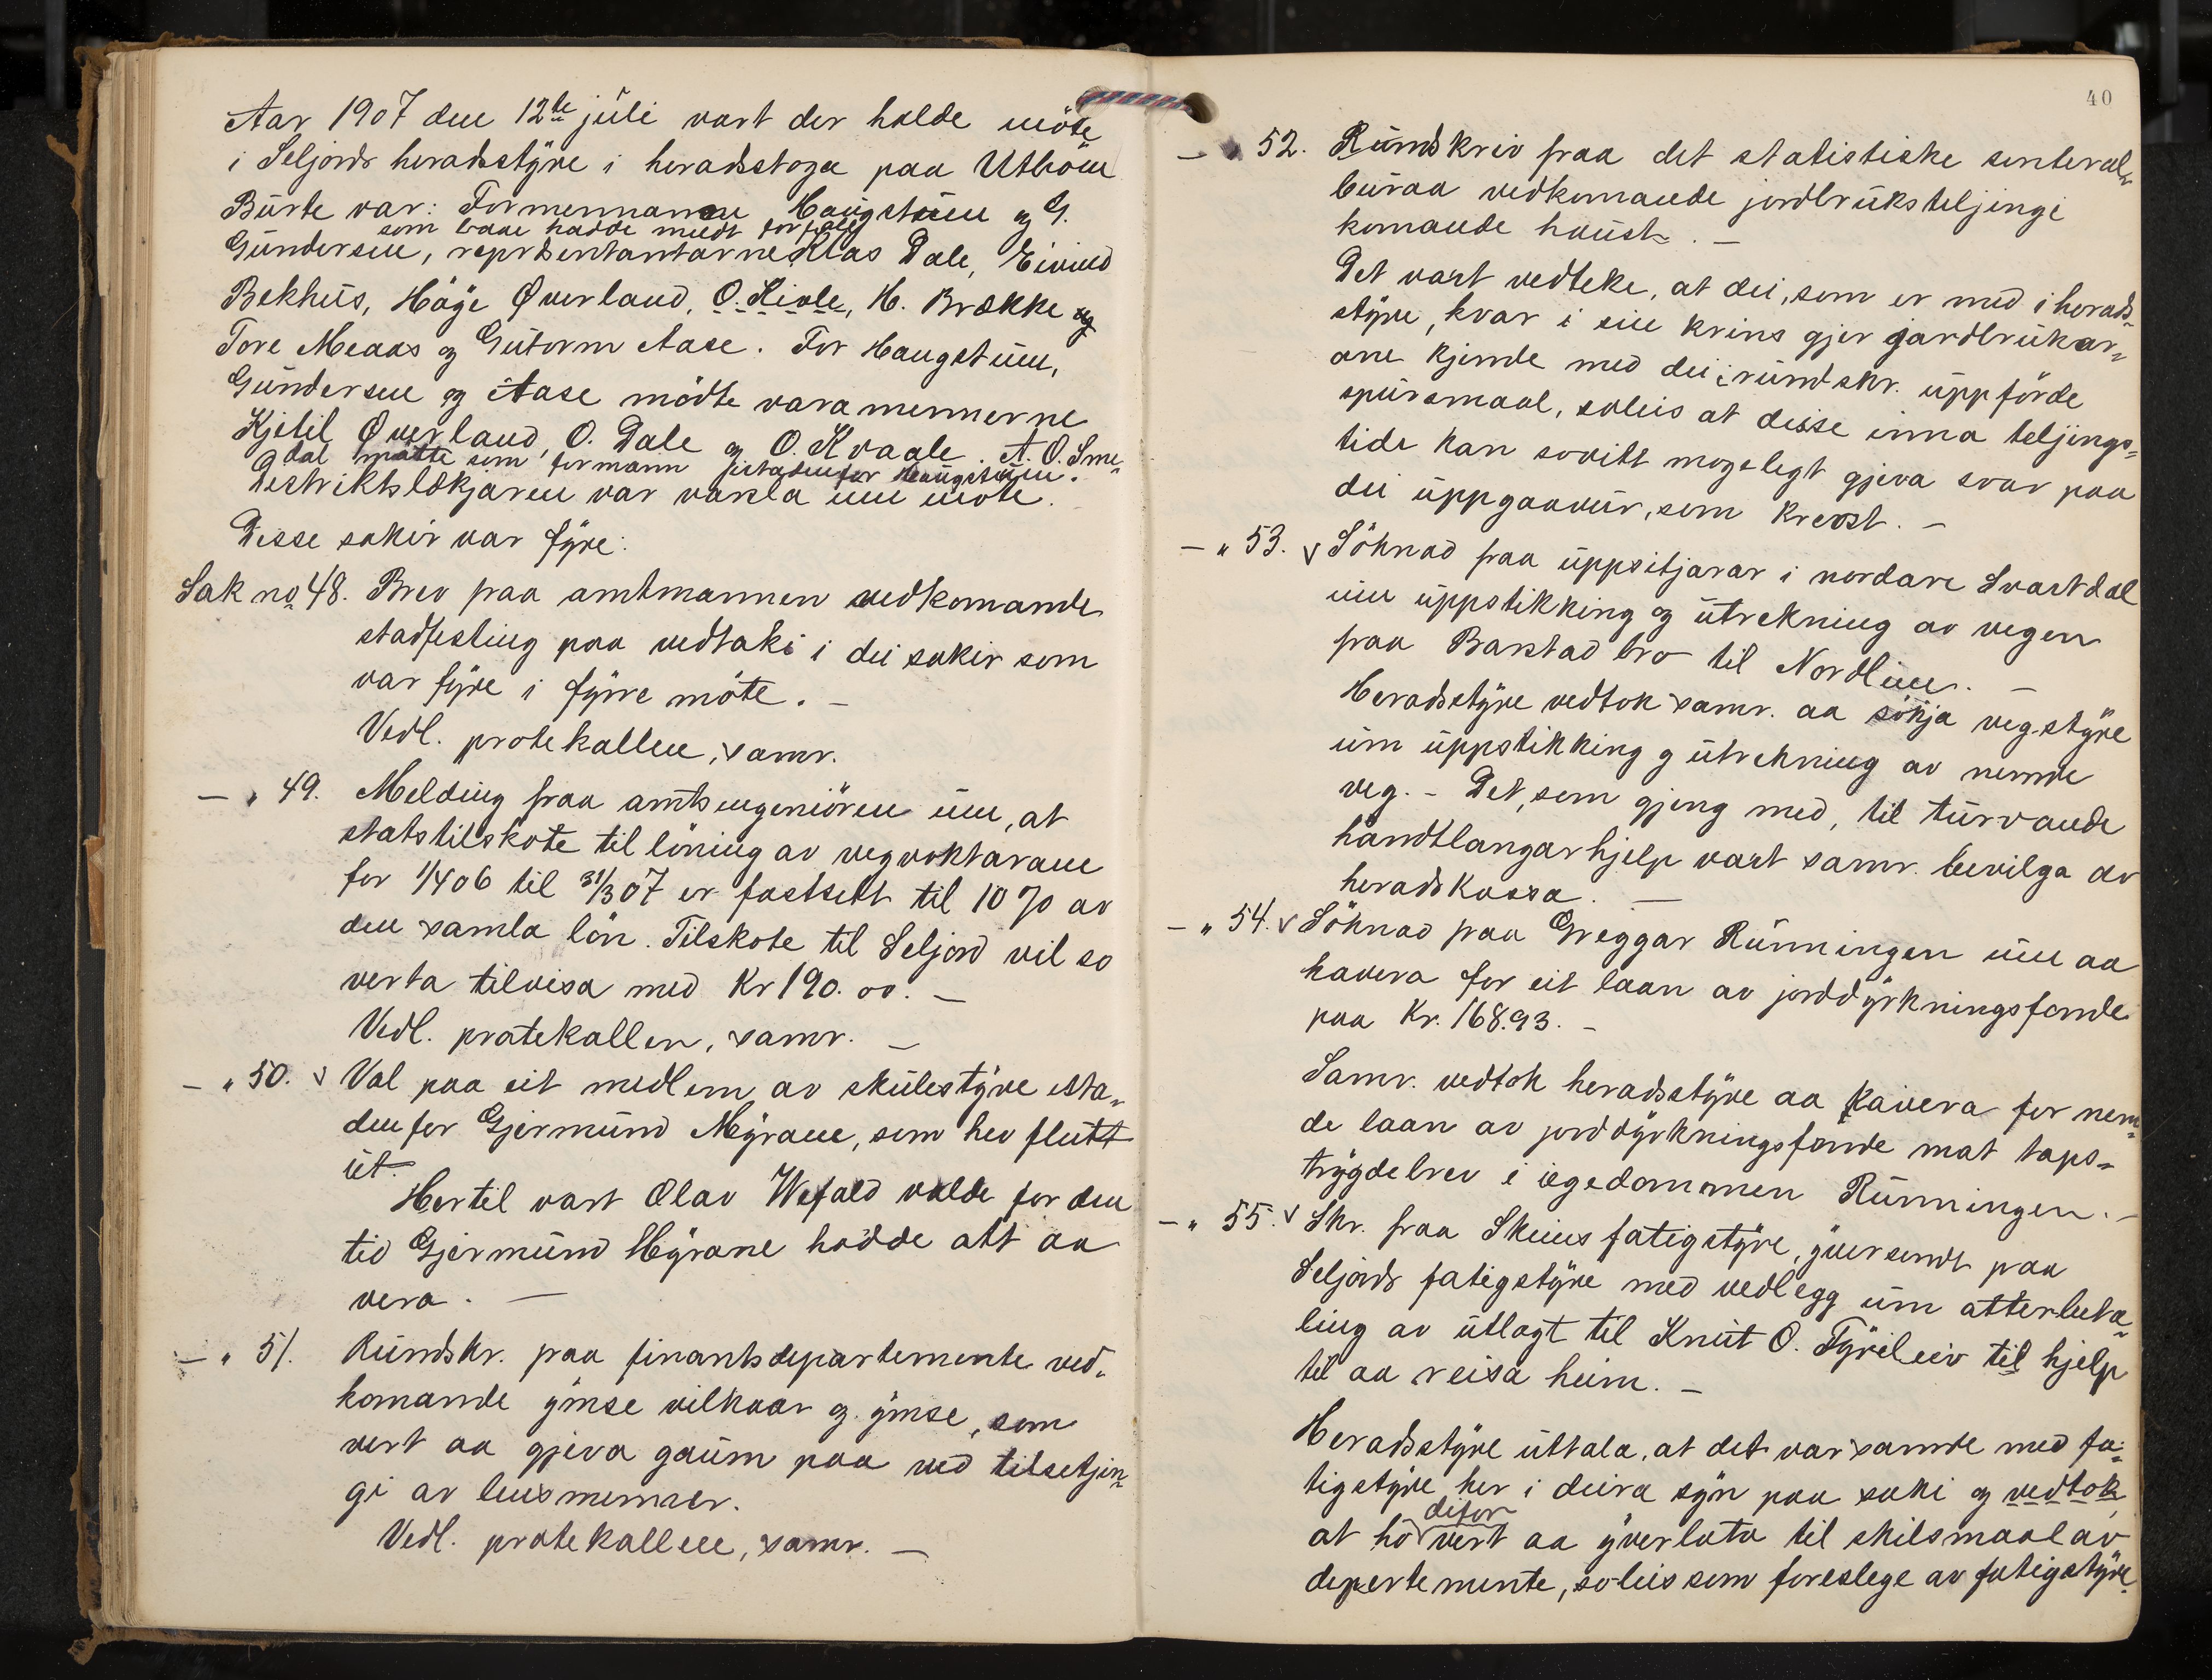 Aar 1907 den 12te juli vart der halde möte
i Seljords heradsstyre i heradsstoga paa Utböen
Burte var: Formennanne Haugstuen og G.
som baae hadde meldt forfall
Gundersen, reprsentantarne Klas Dale, Eivind
Bekhus, Höge Øverland, O. Kivle, H. Brække og
Tore Meaas og Gutorm Aase. For Haugstuen,
Gundersen og Aase mödte varamennerne
Kjetil Øverland, O. Dale og O. Kvaale. A. O. Sme-
dal mötte som formann istadenfor Haugstuen.
Destriktslækjaren var varsla um möte.
Disse sakir var fyre:
Sak no 48. Brev fraa amtmannen vedkomande
stadfesting paa vedtaki i dei sakir som
var fyre i fyrre möte. -
Vedl. protekallen, samr.
— " 49. Melding fraa amtsingeniören um, at
statstilskote til löning av vegvoktarane
for 1/4 06 til 31/3 07 er fastsett til 10 % av
den samla lön. Tilskote til Seljord vil so
verta tilvisa med Kr 190.00. —
Vedl. protekallen, samr. —
— " 50. v Val paa eit medlem av skulestyre ista-
denfor Gjermund Myrane, som hev flutt
ut.
Hertil vart Olav Wefald valde for den
tid Gjermund Myrane hadde att aa
vera. —
— " 51. Rundskr. fraa finantsdepartemente ved-
komande ymse vilkaar og ymse, som
vert aa gjeva gaum paa ved tilsetjin-
gi av lensmenner.
Vedl. protekallen, samr. —
40
— " 52. Rundskriv fraa det statistiske senteral-
buraa vedkomande jordbruksteljingi
komande haust. —
Det vart vedteke, at dei, som er med i herads-
styre, kvar i sin krins gjer jardbrukar-
ane kjende med dei i rundskr. uppförde
spursmaal, soleis at disse inna teljings-
tide kan sovitt mogelegt gjeva svar paa
dei uppgaavur, som krevst. —
— " 53. v Söknad fraa uppsitjarar i nordare Svartdal
um uppstikking og utrekning av vegen
fraa Barstad bro til Nordlien. —
Heradsstyre vedtok samr. aa sökja vegstyre
um uppstikking og utrekning av nemde
veg. - Det, som gjeng med, til turvande
handtlangarhjelp vart samr. bevilga av
heradskassa. —
— " 54. v Söknad fraa Greggar Runningen um aa
kavera for eit laan av jorddyrkningsfonde
paa Kr. 168.93. -
Samr. vedtok heradsstyre aa kavera for nem-
de laan av jorddyrkningsfonde mot taps-
trygdebrev i eigedommen Runningen. -
— " 55. v Skr. fraa Skiens fatigstyre, yversendt fraa
Seljords fatigstyre med vedlegg um atterbeta-
ling av utlagt til Knut O. Fyrileiv til hjelp
til aa reisa heim. -
Heradsstyre uttala, at det var samde med fa-
tigstyre her i deira syn paa saki og vedtok,
difor
at ho vert aa yverlata til skilsmaal av
departemente, soleis som foreslege av fatigstyre.